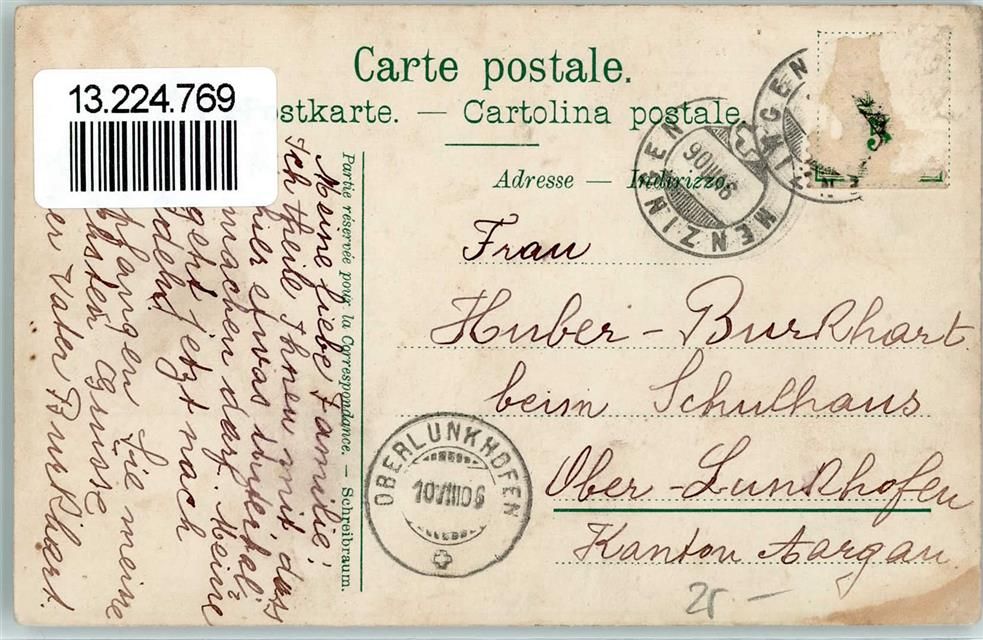 13.224.769
Carte postale.
ostkarte. — Cartolina postale.
Adresse — Indirizzo.
MENZINGEN
OBERLUNKHOFEN
10 VIII 06
5
Frau
Huber-Burkhart
beim Schulhaus
Ober-Lunkhofen
Kanton Aargau
Partie réservée pour la Correspondance. — Schreibraum.
Meine liebe Familie!
Ich theile Ihnen mit, dass
hier etwas
machen darf. Meine
geht jetzt nach
pfangen Sie meine
Grüsse
er Vater Burkhart.
25 —